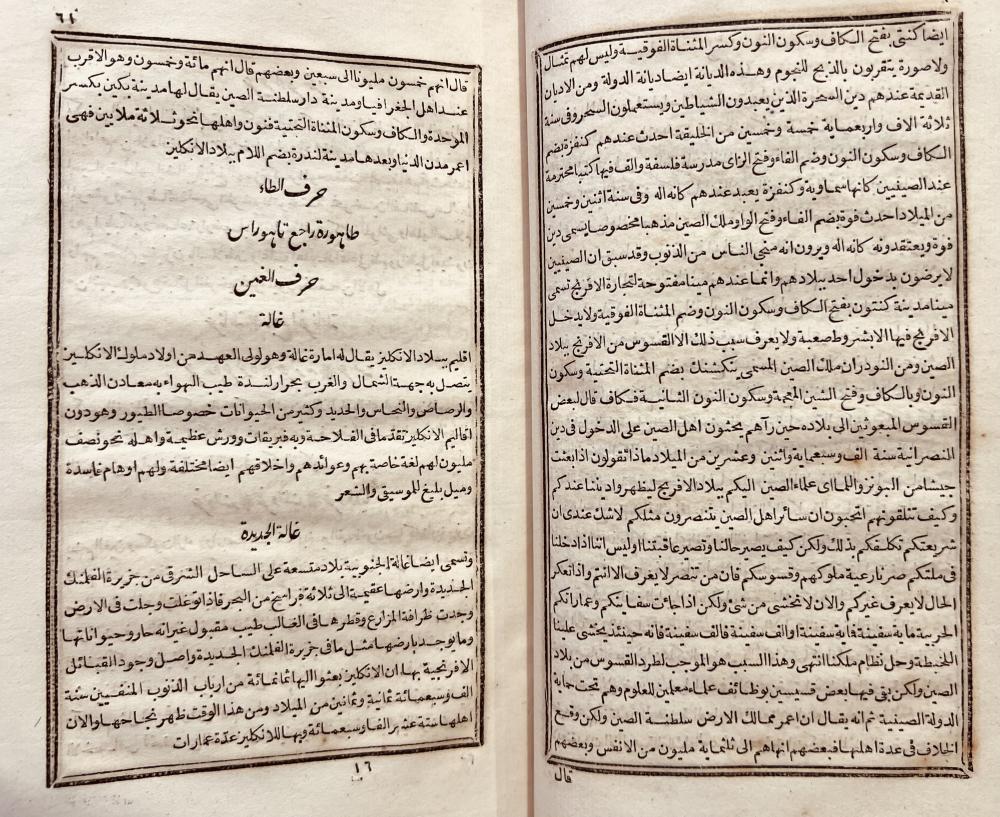 ايضا كنتى بفتح الكاف وسكون النون وكسر المثناة الفوقية وليس لهم تمثال
ولا صورة يتقربون بالذبح للنجوم وهذه الديانة ايضا ديانة الدولة ومن الاديان
القديمة عندهم دين السحرة الذين يعبدون الشياطين ويستعملون السحر وفى سنة
ثلاثة الاف واربعماية خمسة وخمسين من الخليقة احدث عندهم كنفزة بضم
الكاف وسكون النون وضم الفاء وفتح الزاى مدرسة فلسفة والف فيها كتبا محترمة
عند الصيفيين كانها سماوية وكنفزة يعبد عندهم كانه اله وفى سنة اثنين وخمسين
من الميلاد احدث فوة بضم الفاء وفتح الواو ملك الصين مذهبا مخصوصا يسمى دين
فوة ويعتقدونه كانه اله ويرون انه منجى الناس من الذنوب وقد سبق ان الصيفيين
لا يرضون بدخول احد بلادهم وانما عندهم مينا مفتوحة لتجارة الافرنج تسمى
مينا مدينة كنتون بفتح الكاف وسكون النون وضم المثناة الفوقية ولا يدخل
الافرنج فيها الا بشروط صعبة ولا يعرف سبب ذلك الا القسوس من الافرنج ببلاد
الصين ومن النودران ملك الصين المسمى يتكشنك بضم المثناة التحتية وسكون
النون وبالكاف وفتح الشين المعجمة وسكون النون الثانية فكاف قال لبعض
القسوس المبعوثين الى بلاده حين رآهم يحثون اهل الصين على الدخول فى دين
النصرانية سنة الف وسبعماية واثنين وعشرين من الميلاد ماذا تقولون اذا بعثت
جيشا من البونز واللما اى علماء الصين اليكم ببلاد الافرنج ليظهروا ديننا عندكم
وكيف تتلقونهم اتحبون ان سائر اهل الصين يتنصرون مثلكم لا شك عندى ان
شريعتكم تكلفكم بذلك ولكن كيف يصير حالنا وتصير عاقبتنا وليس اننا اذا دخلنا
فى ملتكم صرنا رعية ملوككم وقسوسكم فان من تنصر لا يعرف الا انتم واذا تعكر
الحال لا يعرف غيركم والان لا نخشى من شئ ولكن اذا جائت سفائنكم وعماراتكم
الحربية ماية سفينة فاية سفينة او الف سفينة فالف سفينة فانه حينئذ يخشى علينا
اللخبطة وحل نظام ملكنا انتهى وهذا السبب هو الموجب لطرد القسوس من بلاد
الصين ولكن بقى فيها بعض قسيسين بوظائف علماء معلمين للعلوم وهم تحت حماية
الدولة الصينية ثم انه يقال ان اعمر ممالك الارض سلطنة الصين ولكن وقع
الخلاف فى عدة اهلها فبعضهم انهاهم الى ثلثماية مليون من الانفس وبعضهم
قال
٦١
قال انهم خمسون مليونا الى سبعين وبعضهم قال انهم مائة وخمسون وهو الاقرب
عند اهل الجغرافيا ومدينة دار سلطنة الصين يقال لها مدينة بكين بكسر
الموحدة والكاف وسكون المثناة التحتية فنون واهلها نحو ثلاثة ملايين فهى
اعمر مدن الدنيا وبعدها مدينة لندرة بضم اللام ببلاد الانكليز
حرف الطاء
طاهورة راجع تاهوراس
حرف الغين
غالة
اقليم ببلاد الانكليز يقال له امارة غالة وهو لولى العهد من اولاد ملوك الانكليز
يتصل به جهة الشمال والغرب بحر ارلندة طيب الهواء به معادن الذهب
والرصاص والنحاس والحديد وكثير من الحيوانات خصوصا الطيور وهو دون
اقاليم الانكليز تقدما فى الفلاحة وبه فبريقات وورش عظيمة واهله نحو نصف
مليون لهم لغة خاصة بهم وعوائدهم واخلاقهم ايضا مختلفة ولهم اوهام فاسدة
وميل بليغ للموسيقى والشعر
غالة الجديدة
وتسمى ايضا غالة الجنوبية بلاد متسعة على الساحل الشرقى من جزيرة الفلمنك
الجديدة وارضها عقيمة الى ثلاثة فراسخ من البحر فاذا توغلت وجلت فى الارض
وجدت ظرافة المزارع وقطرها فى الغالب طيب مقبول غير انه حار وحيواناتها
وما يوجد بارضها مثل ما فى جزيرة الفلمنك الجديدة واصل وجود القبائلى
الافرنجية بها ان الانكليز بعثوا اليها ثمانمائة من ارباب الذنوب المنفيين سنة
الف وسبعمائة ثمانية وثمانين من الميلاد ومن هذا الوقت ظهر نجاحها والان
اهلها ستة عشر الفا وسبعمائة وبها للانكليز عدة عمارات
١٦